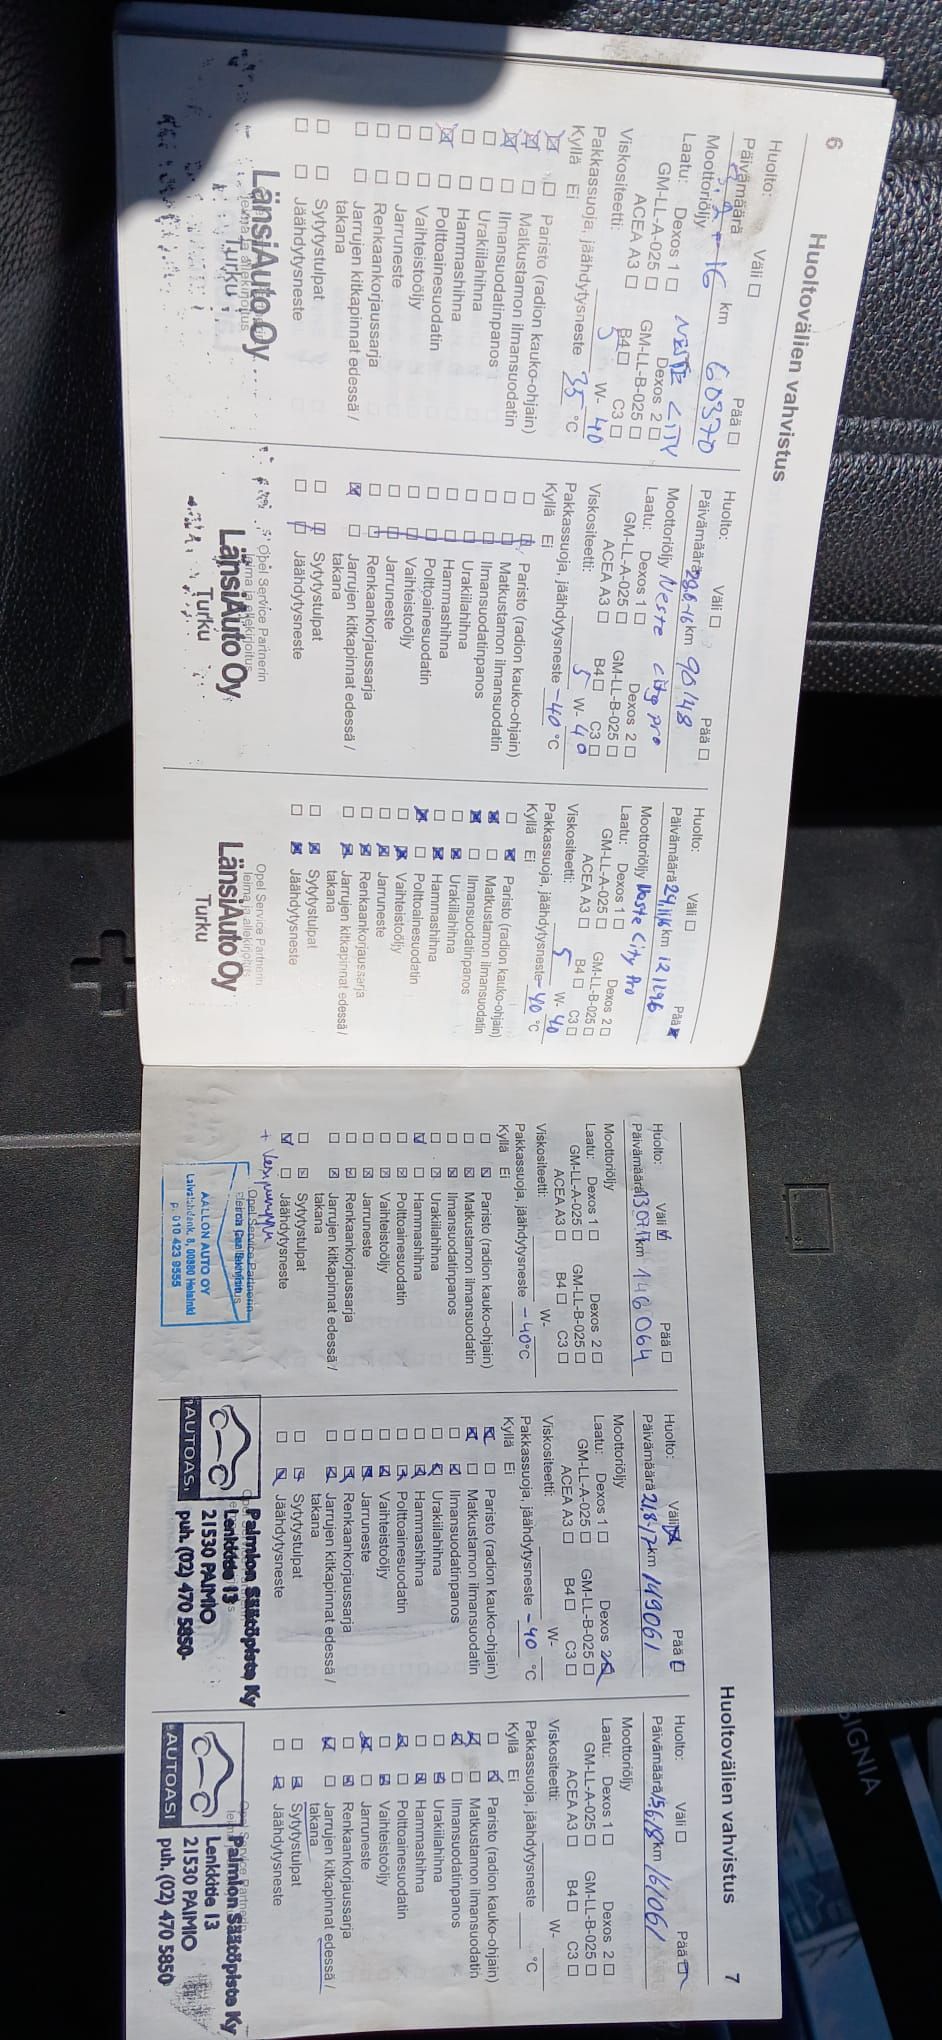 6
Huoltovälien vahvistus
Huolto: Väli ☐ Pää ☐
Päivämäärä 16 km 60370
Moottoriöljy NESTE CITY
Laatu: Dexos 1 ☐ Dexos 2 ☐
GM-LL-A-025 ☐ GM-LL-B-025 ☐
ACEA A3 ☐ B4 ☐ C3 ☐
Viskositeetti: 5 W- 40
Pakkassuoja, jäähdytysneste 35 °C
Kyllä Ei
☒ ☐ Paristo (radion kauko-ohjain)
☒ ☐ Matkustamon ilmansuodatin
☒ ☐ Ilmansuodatinpanos
☐ ☐ Urakiilahihna
☐ ☐ Hammashihna
☒ ☐ Polttoainesuodatin
☐ ☐ Vaihteistoöljy
☐ ☐ Jarruneste
☐ ☐ Renkaankorjaussarja
☐ ☐ Jarrujen kitkapinnat edessä /
takana
☐ ☐ Sytytystulpat
☐ ☐ Jäähdytysneste
leima ja allekirjoitus
LänsiAuto Oy
Turku
Huolto: Väli ☐ Pää ☐
Päivämäärä 16 km 90148
Moottoriöljy Neste City pro
Laatu: Dexos 1 ☐ Dexos 2 ☐
GM-LL-A-025 ☐ GM-LL-B-025 ☐
ACEA A3 ☐ B4 ☐ C3 ☐
Viskositeetti: 5 W- 40
Pakkassuoja, jäähdytysneste -40 °C
Kyllä Ei
Paristo (radion kauko-ohjain)
Matkustamon ilmansuodatin
Ilmansuodatinpanos
Urakiilahihna
Hammashihna
Polttoainesuodatin
Vaihteistoöljy
Jarruneste
Renkaankorjaussarja
☒ ☐ Jarrujen kitkapinnat edessä /
takana
Sytytystulpat
Jäähdytysneste
Opel Service Partnerin
leima ja allekirjoitus
LänsiAuto Oy
Turku
Huolto: Väli ☐ Pää ☒
Päivämäärä 24.11.16 km 121296
Moottoriöljy Neste City Pro
Laatu: Dexos 1 ☐ Dexos 2 ☐
GM-LL-A-025 ☐ GM-LL-B-025 ☐
ACEA A3 ☐ B4 ☐ C3 ☐
Viskositeetti: 5 W- 40
Pakkassuoja, jäähdytysneste -40 °C
Kyllä Ei
☐ ☒ Paristo (radion kauko-ohjain)
☒ ☐ Matkustamon ilmansuodatin
☒ ☐ Ilmansuodatinpanos
☐ ☒ Urakiilahihna
☐ ☒ Hammashihna
☒ ☐ Polttoainesuodatin
☐ ☒ Vaihteistoöljy
☐ ☒ Jarruneste
☐ ☒ Renkaankorjaussarja
☐ ☒ Jarrujen kitkapinnat edessä /
takana
☐ ☒ Sytytystulpat
☐ ☒ Jäähdytysneste
Opel Service Partnerin
leima ja allekirjoitus
LänsiAuto Oy
Turku
Huoltovälien vahvistus
7
Huolto: Väli ☒ Pää ☐
Päivämäärä km 146064
Moottoriöljy
Laatu: Dexos 1 ☐ Dexos 2 ☐
GM-LL-A-025 ☐ GM-LL-B-025 ☐
ACEA A3 ☐ B4 ☐ C3 ☐
Viskositeetti: W-
Pakkassuoja, jäähdytysneste -40 °C
Kyllä Ei
☐ ☒ Paristo (radion kauko-ohjain)
☐ ☒ Matkustamon ilmansuodatin
☐ ☒ Ilmansuodatinpanos
☐ ☒ Urakiilahihna
☒ ☐ Hammashihna
☐ ☒ Polttoainesuodatin
☐ ☒ Vaihteistoöljy
☐ ☒ Jarruneste
☐ ☒ Renkaankorjaussarja
☐ ☒ Jarrujen kitkapinnat edessä /
takana
☐ ☒ Sytytystulpat
☒ ☐ Jäähdytysneste
+ Vesipumppu
Opel Service Partnerin
AALLON AUTO OY
Laivalahdenk. 8, 00880 Helsinki
P. 010 423 9555
Huolto: Väli ☒ Pää ☐
Päivämäärä 21.8-17 km 149061
Moottoriöljy
Laatu: Dexos 1 ☐ Dexos 2 ☒
GM-LL-A-025 ☐ GM-LL-B-025 ☐
ACEA A3 ☐ B4 ☐ C3 ☐
Viskositeetti: W-
Pakkassuoja, jäähdytysneste -40 °C
Kyllä Ei
☒ ☐ Paristo (radion kauko-ohjain)
☒ ☐ Matkustamon ilmansuodatin
☐ ☒ Ilmansuodatinpanos
☐ ☒ Urakiilahihna
☐ ☒ Hammashihna
☐ ☒ Polttoainesuodatin
☐ ☒ Vaihteistoöljy
☐ ☒ Jarruneste
☐ ☒ Renkaankorjaussarja
☐ ☒ Jarrujen kitkapinnat edessä /
takana
☐ ☒ Sytytystulpat
☐ ☒ Jäähdytysneste
AUTOASI
Paimion Säätöpiste Ky
Lenkkitie 13
21530 PAIMIO
puh. (02) 470 5850
Huolto: Väli ☐ Pää ☒
Päivämäärä 15.6.18 km 161061
Moottoriöljy
Laatu: Dexos 1 ☐ Dexos 2 ☐
GM-LL-A-025 ☐ GM-LL-B-025 ☐
ACEA A3 ☐ B4 ☐ C3 ☐
Viskositeetti: W-
Pakkassuoja, jäähdytysneste °C
Kyllä Ei
☐ ☒ Paristo (radion kauko-ohjain)
☒ ☐ Matkustamon ilmansuodatin
☒ ☐ Ilmansuodatinpanos
☐ ☒ Urakiilahihna
☐ ☒ Hammashihna
☒ ☐ Polttoainesuodatin
☐ ☒ Vaihteistoöljy
☒ ☐ Jarruneste
☐ ☒ Renkaankorjaussarja
☒ ☐ Jarrujen kitkapinnat edessä /
takana
☐ ☒ Sytytystulpat
☐ ☒ Jäähdytysneste
AUTOASI
Paimion Säätöpiste Ky
Lenkkitie 13
21530 PAIMIO
puh. (02) 470 5850
SIGNIA